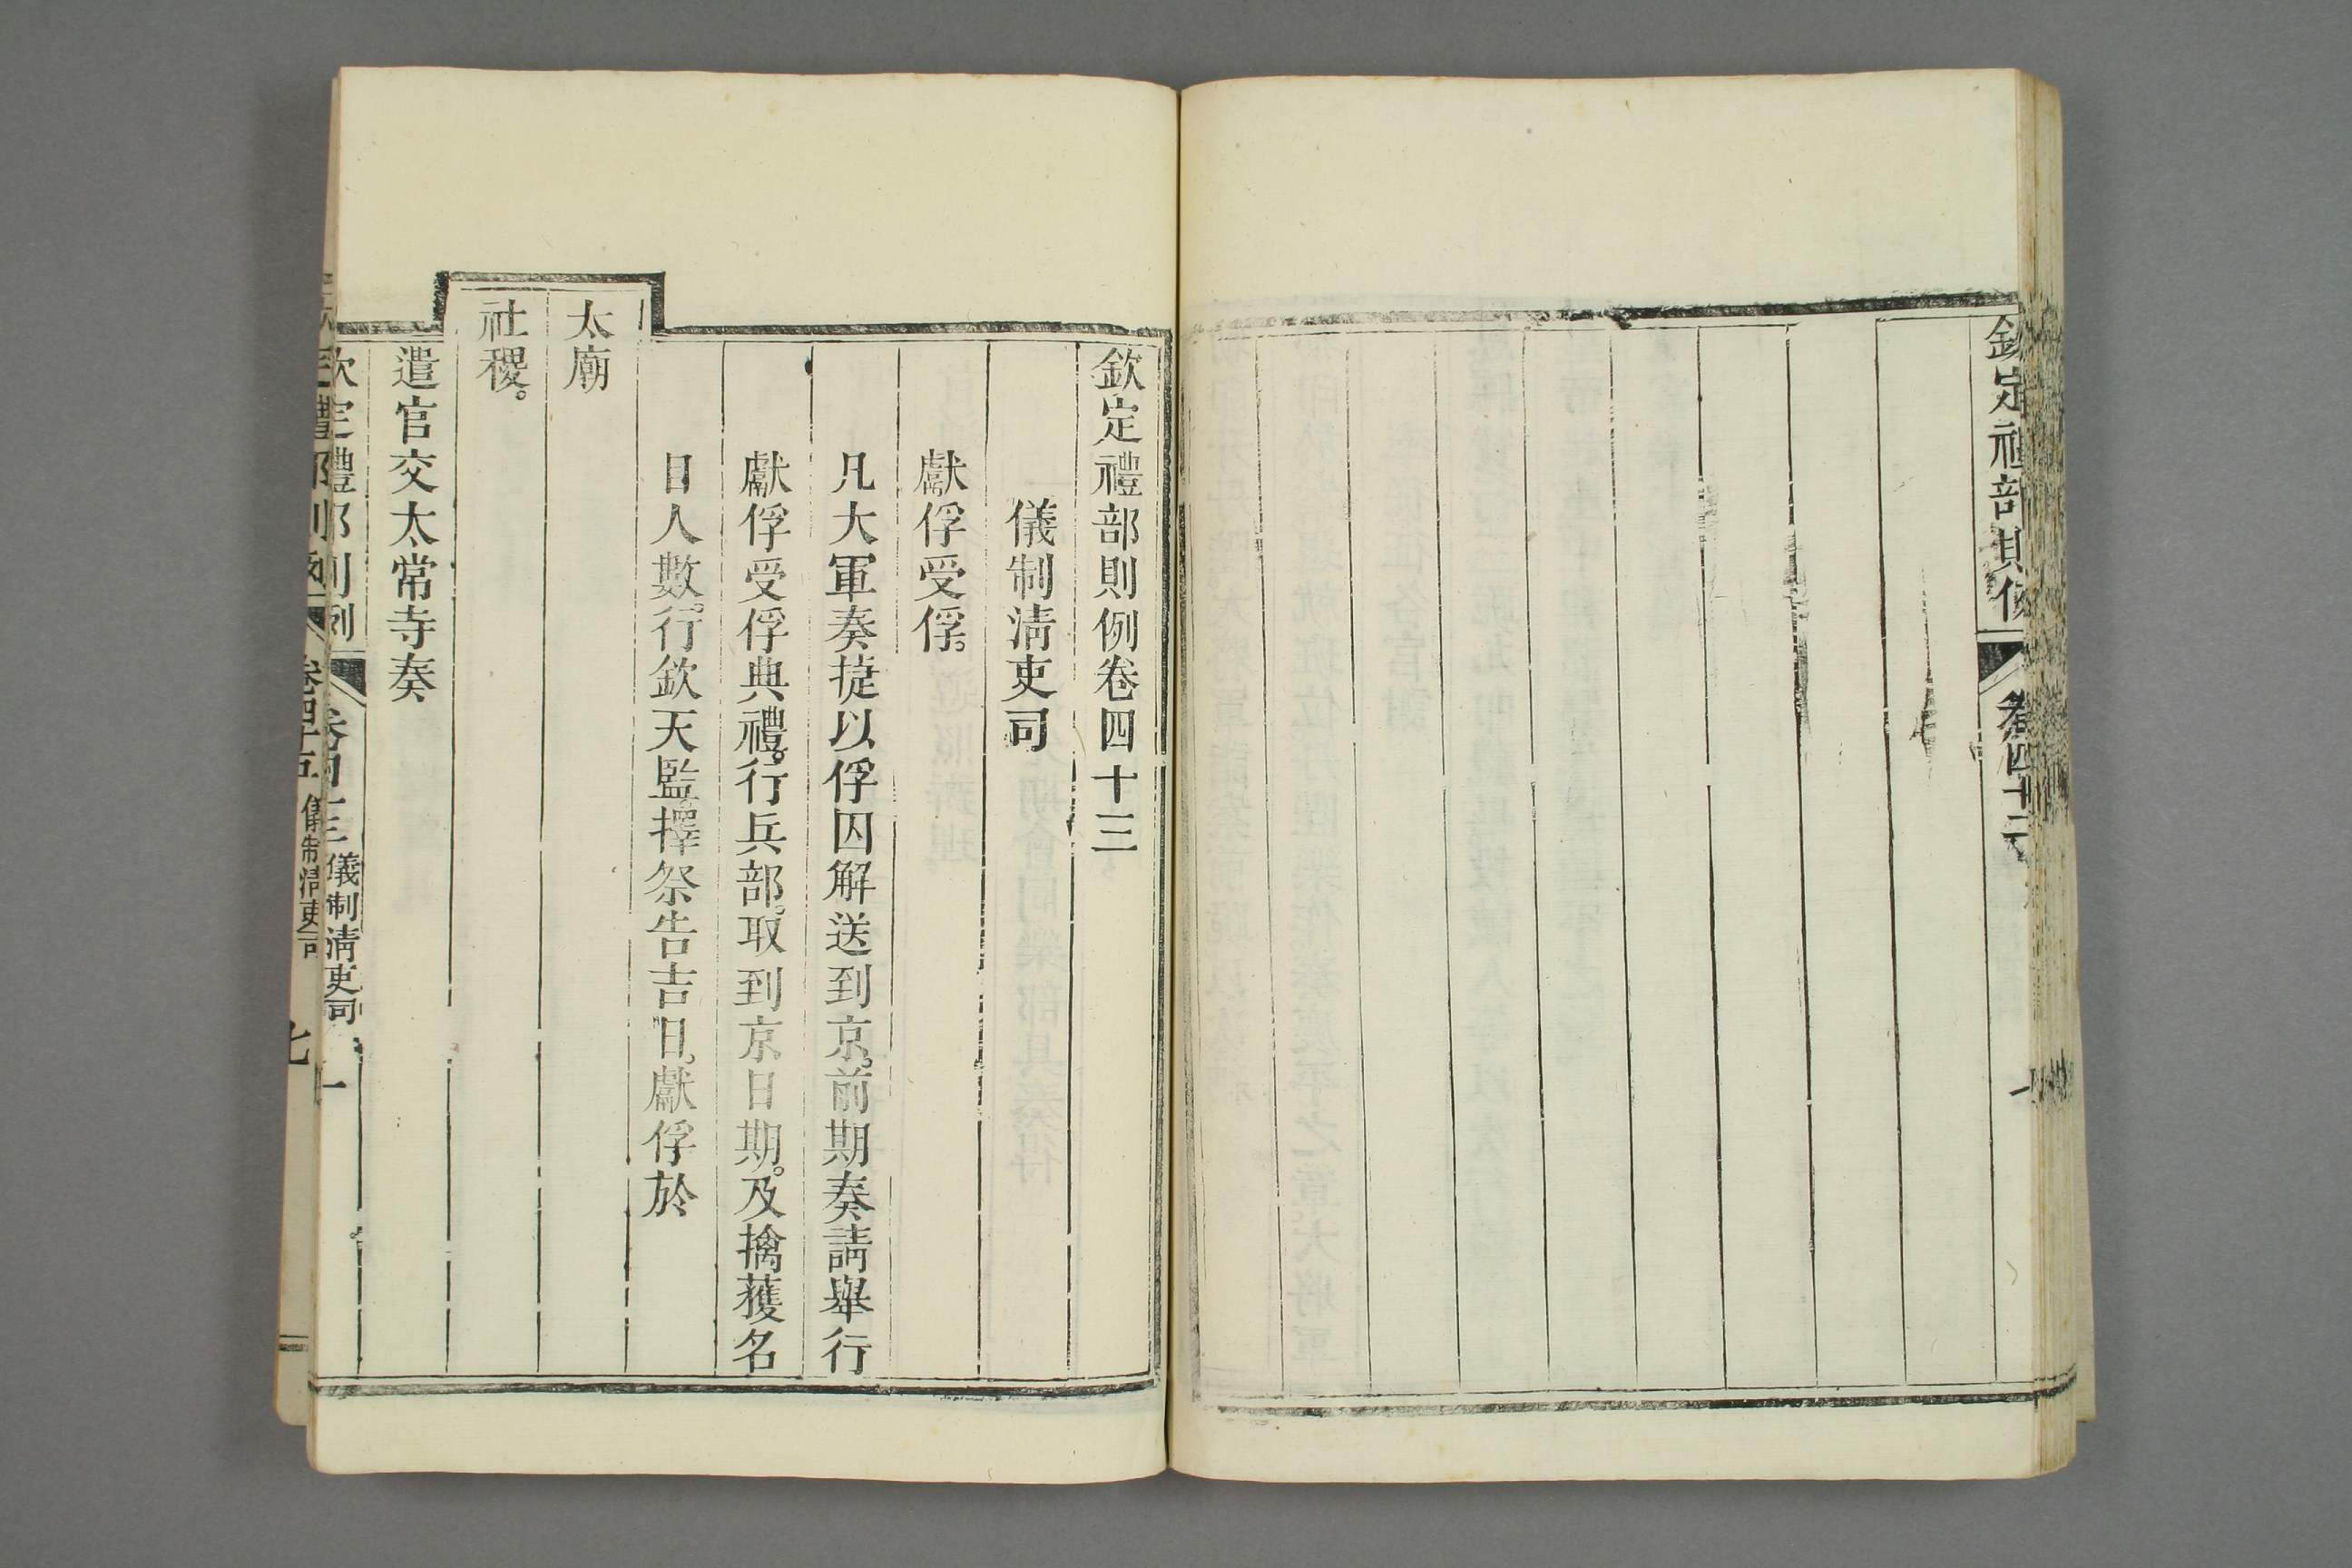 欽定禮部則例
卷四十二
欽定禮部則例卷四十三
儀制淸吏司
獻俘受俘。
凡大軍奏捷以俘囚解送到京。前期奏請舉行
獻俘受俘典禮。行兵部。取到京日期。及擒獲名
目人數。行欽天監。擇祭告吉日。獻俘於
太廟
社稷。
遣官交太常寺奏
欽定禮部則例
卷四十三
儀制淸吏司
一
儀制淸吏司
七